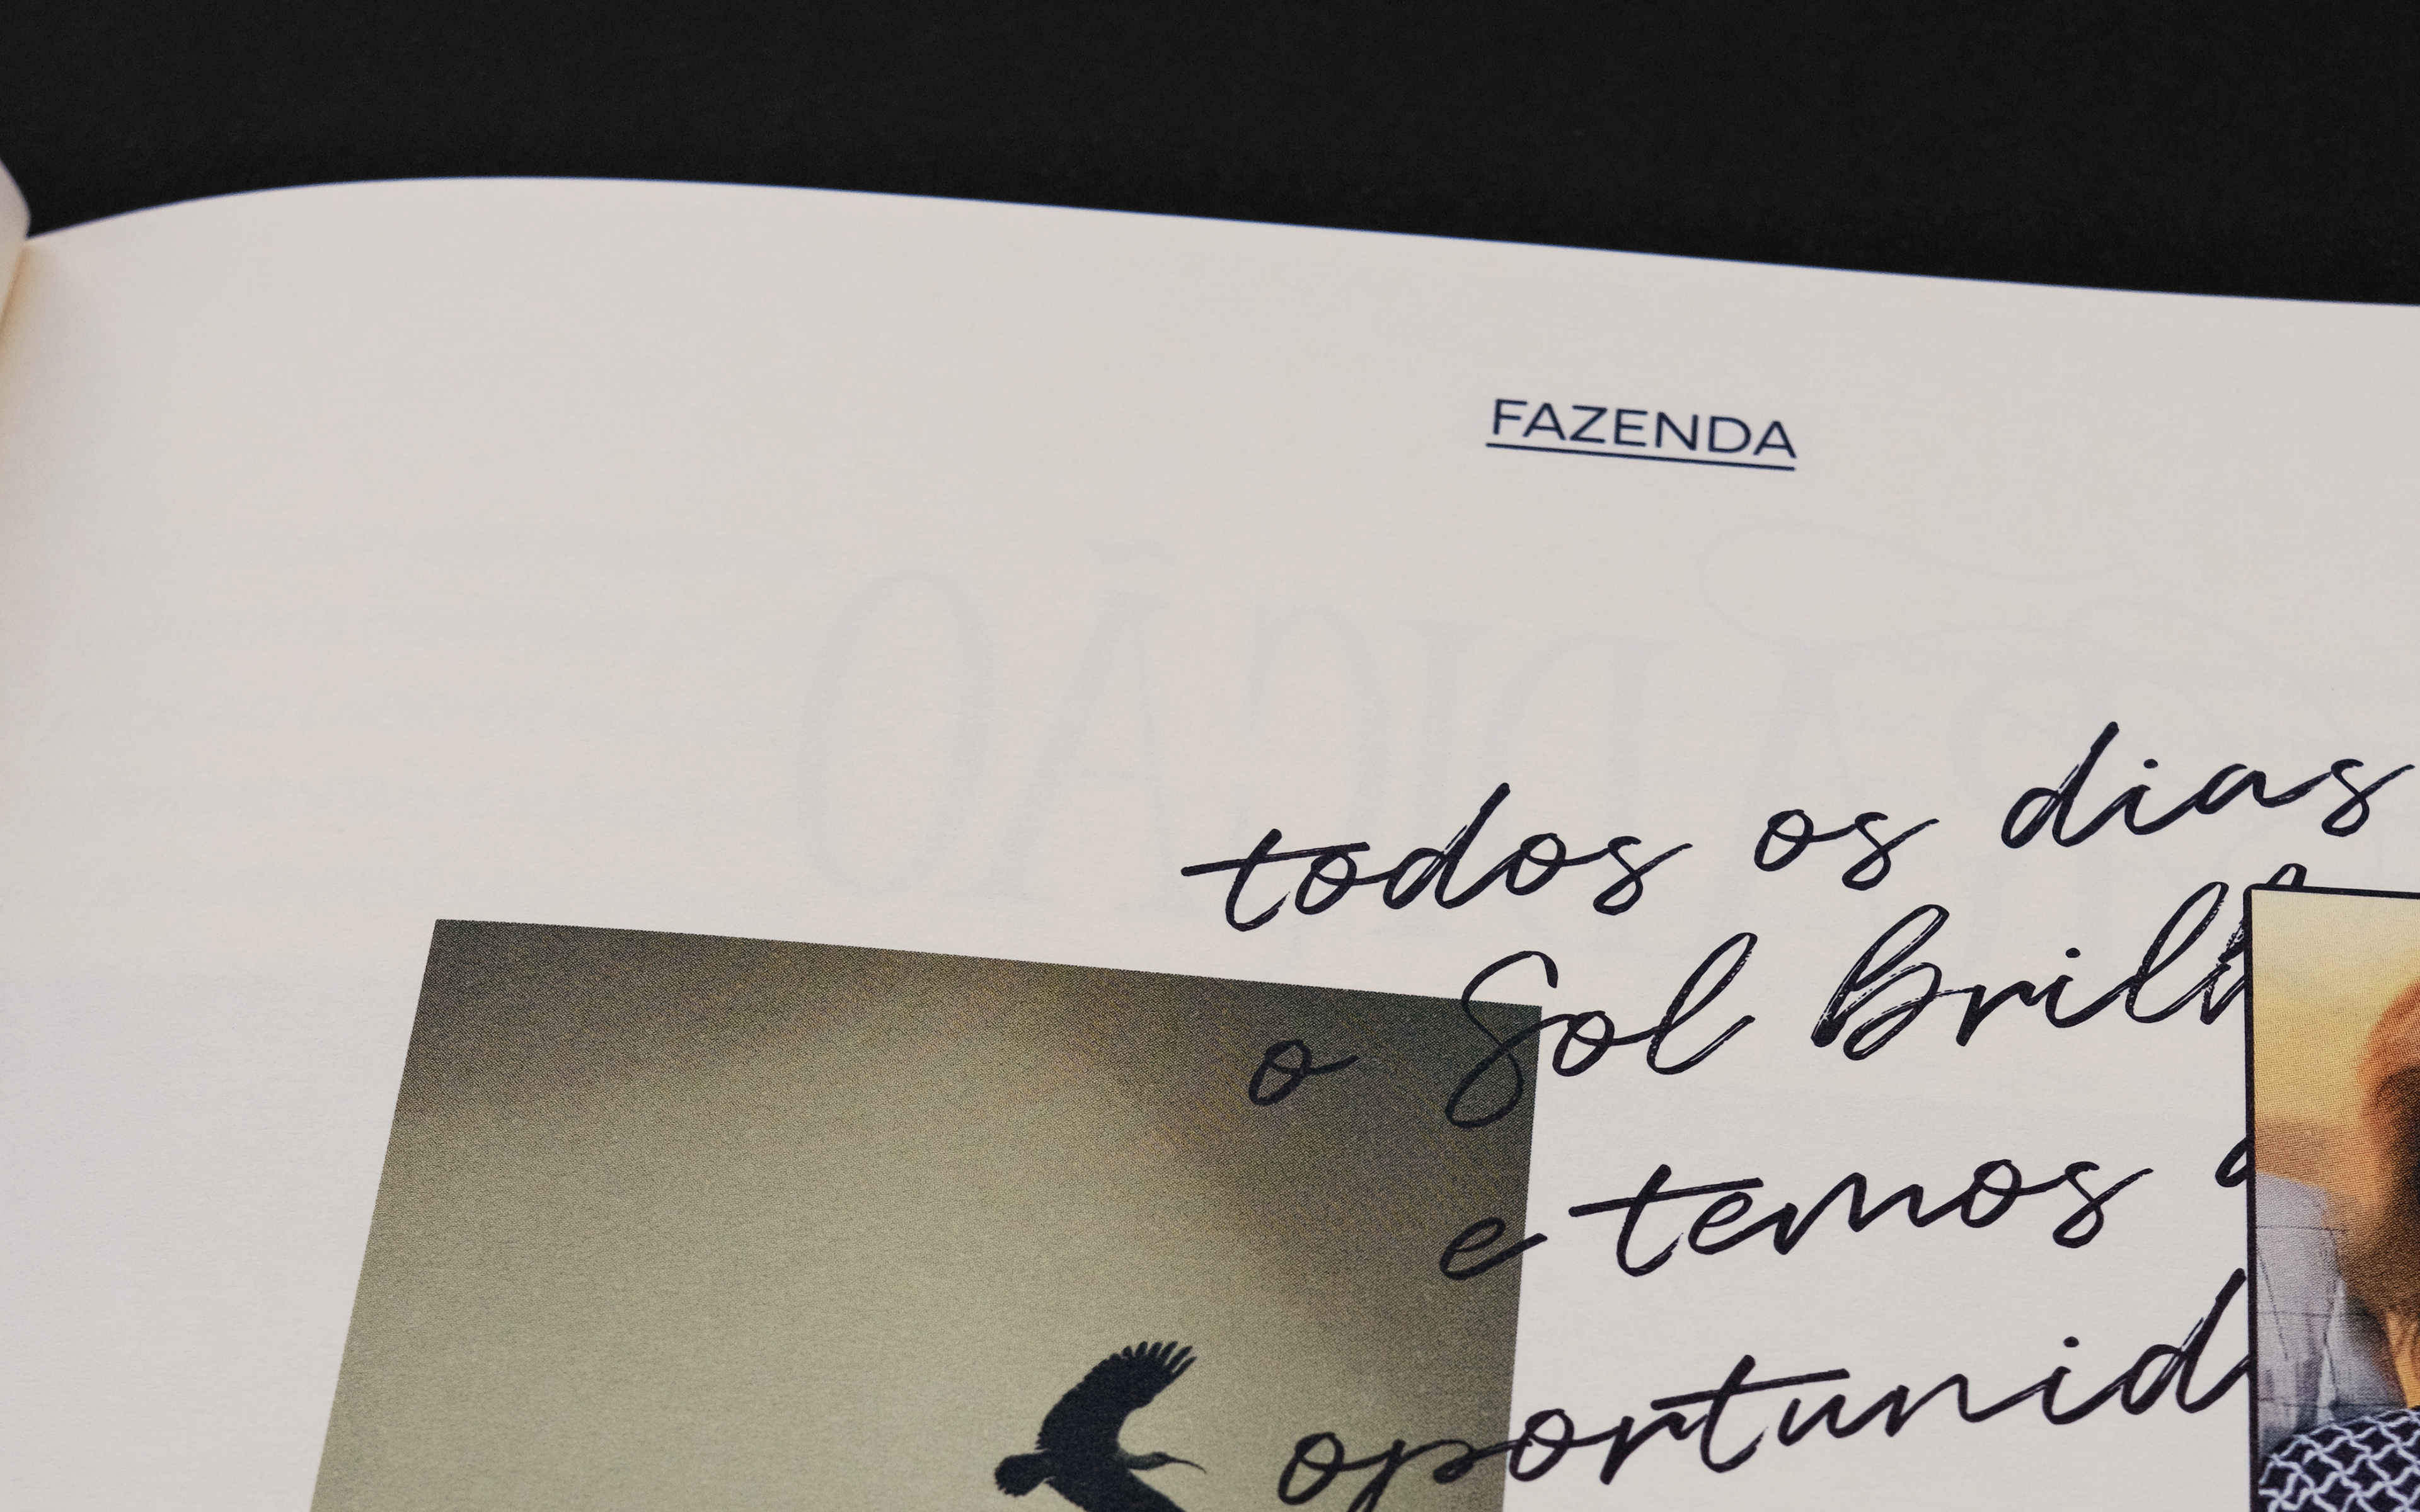 FAZENDA
todos os dias
o Sol Brilh
e temos
oportunid